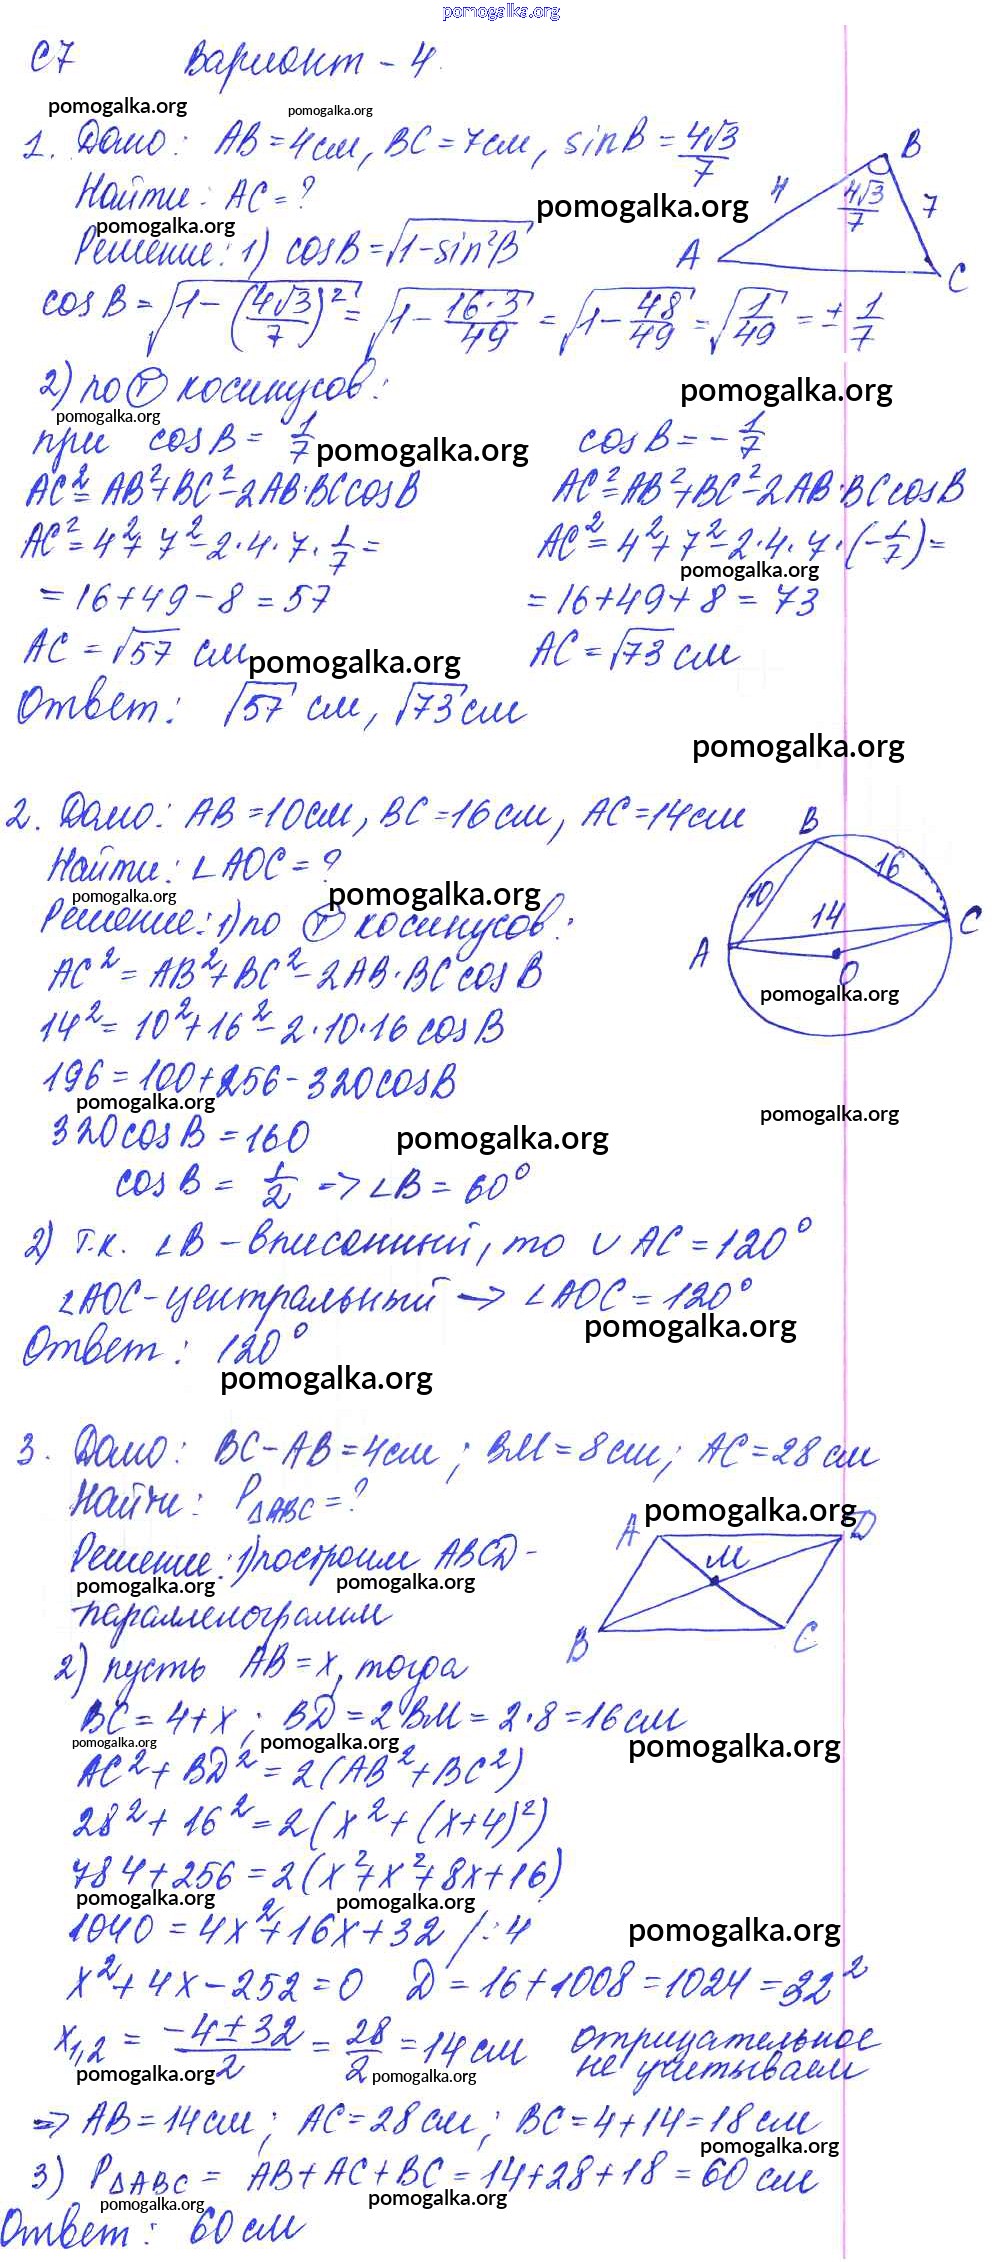 pomogalka.org
С7 Вариант - 4.
pomogalka.org pomogalka.org
1. Дано: AB = 4 см, BC = 7 см, sin B = 4√3/7
Найти: AC = ?
pomogalka.org
pomogalka.org
Решение: 1) cos B = √(1 - sin²B)
A 4 B 4√3/7 7 C
cos B = √(1 - (4√3/7)²) = √(1 - 16·3/49) = √(1 - 48/49) = √(1/49) = ± 1/7
2) по Ⓣ косинусов:
pomogalka.org
pomogalka.org
при cos B = 1/7 cos B = - 1/7
pomogalka.org
AC² = AB² + BC² - 2AB·BC cos B AC² = AB² + BC² - 2AB·BC cos B
AC² = 4² + 7² - 2·4·7·1/7 = AC² = 4² + 7² - 2·4·7·(-1/7) =
pomogalka.org
= 16 + 49 - 8 = 57 = 16 + 49 + 8 = 73
AC = √57 см AC = √73 см
pomogalka.org
Ответ: √57 см, √73 см
pomogalka.org
2. Дано: AB = 10 см, BC = 16 см, AC = 14 см
Найти: ∠AOC = ?
pomogalka.org
pomogalka.org
B 16 10 14 A C O
Решение: 1) по Ⓣ косинусов:
AC² = AB² + BC² - 2AB·BC cos B
pomogalka.org
14² = 10² + 16² - 2·10·16 cos B
196 = 100 + 256 - 320 cos B
pomogalka.org
pomogalka.org
320 cos B = 160
pomogalka.org
cos B = 1/2 => ∠B = 60°
2) т.к. ∠B - вписанный, то ∪ AC = 120°
∠AOC - центральный → ∠AOC = 120°
pomogalka.org
Ответ: 120°
pomogalka.org
3. Дано: BC - AB = 4 см; BM = 8 см; AC = 28 см
Найти: P△ABC = ?
pomogalka.org
A D M B C
Решение: 1) построим ABCD -
pomogalka.org pomogalka.org
параллелограмм
2) пусть AB = x, тогда
BC = 4 + x; BD = 2 BM = 2·8 = 16 см
pomogalka.org pomogalka.org pomogalka.org
AC² + BD² = 2(AB² + BC²)
28² + 16² = 2(x² + (x+4)²)
784 + 256 = 2(x² + x² + 8x + 16)
pomogalka.org pomogalka.org
1040 = 4x² + 16x + 32 /:4
pomogalka.org
x² + 4x - 252 = 0 D = 16 + 1008 = 1024 = 32²
x₁,₂ = (-4 ± 32)/2 = 28/2 = 14 см отрицательное
не учитываем
pomogalka.org pomogalka.org
=> AB = 14 см; AC = 28 см; BC = 4 + 14 = 18 см
pomogalka.org
3) P△ABC = AB + AC + BC = 14 + 28 + 18 = 60 см
pomogalka.org pomogalka.org
Ответ: 60 см